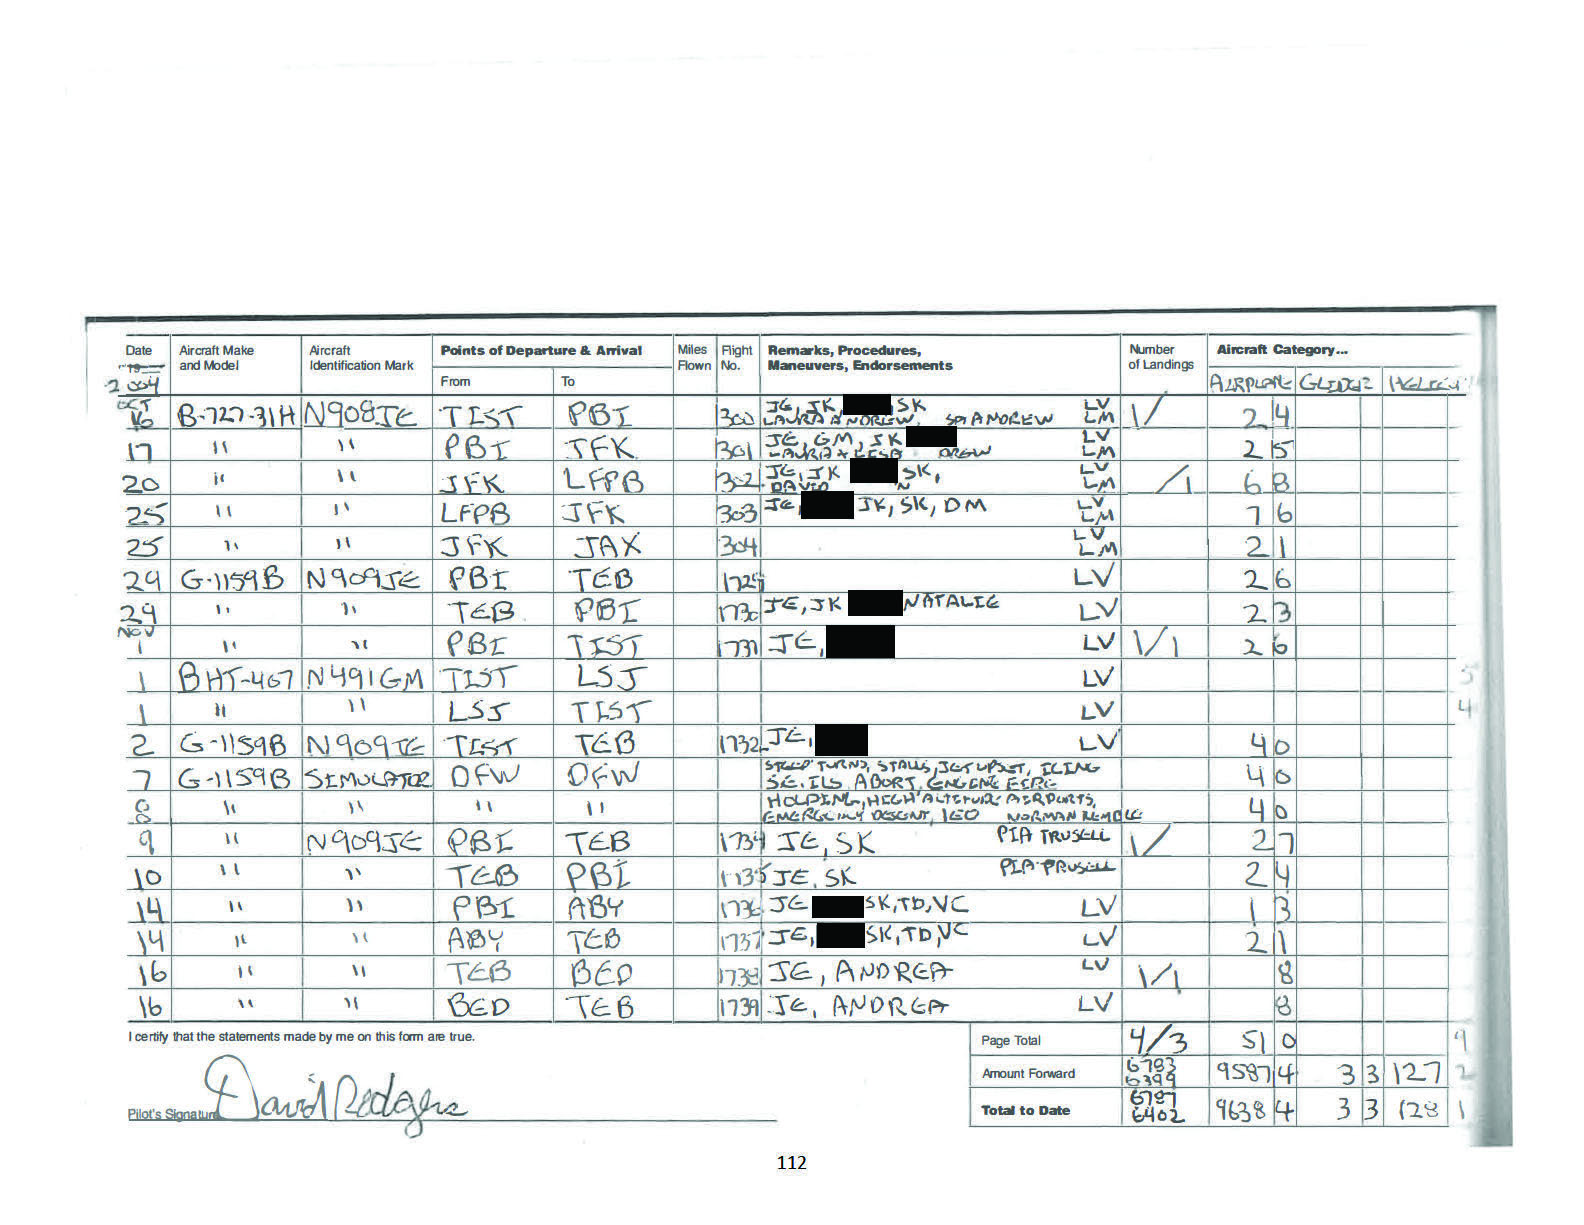 Date Aircraft Make Aircraft Points of Departure & Arrival Miles Flight Remarks, Procedures, Number Aircraft Category...
19 and Model Identification Mark Flown No. Maneuvers, Endorsements of Landings
2004 From To AIRPLANE GLIDER
OCT
16 B-727-31H N908JE TIST PBI 300 JE, JK, SK LV 1/ 2 4
LAURA ANDREW, ANDREW LM
17 " " PBI JFK 301 JE, GM, JK LV 2 5
LM
20 " " JFK LFPB 302 JE, JK SK, LV /1 6 8
DAVID N LM
25 " " LFPB JFK 303 JE, JK, SK, DM LV 7 6
LM
25 " " JFK JAX 304 LV 2 1
LM
29 G-1159B N909JE PBI TEB 1729 LV 2 6
29 " " TEB PBI 1730 JE, JK NATALIE LV 2 3
NOV
1 " " PBI TIST 1731 JE, LV 1/1 2 6
1 BHT-407 N491GM TIST LSJ LV
1 " " LSJ TIST LV 4
2 G-1159B N909JE TIST TEB 1732 JE, LV 4 0
7 G-1159B SIMULATOR DFW DFW STEEP TURNS, STALLS, JET UPSET, ICING 4 0
SE. ILS ABORT, ENGINE FIRE
8 " " " " HOLDING, HIGH ALTITUDE AIRPORTS, 4 0
EMERGENCY DESCENT, NORMAN
9 " N909JE PBI TEB 1734 JE, SK PIA TRUSELL 1/ 2 7
10 " " TEB PBI 1735 JE, SK PIA TRUSELL 2 4
14 " " PBI ABY 1736 JE SK, TD, VC LV 1 3
14 " " ABY TEB 1737 JE, SK, TD, VC LV 2 1
16 " " TEB BED 1738 JE, ANDREA LV 1/1 8
16 " " BED TEB 1739 JE, ANDREA LV 8
I certify that the statements made by me on this form are true. Page Total 4/3 51 0 9
Amount Forward 6783 6399 9587 4 3 3 127 2
Pilot's Signature David Rodgers Total to Date 6787 6402 9638 4 3 3 128 1
112